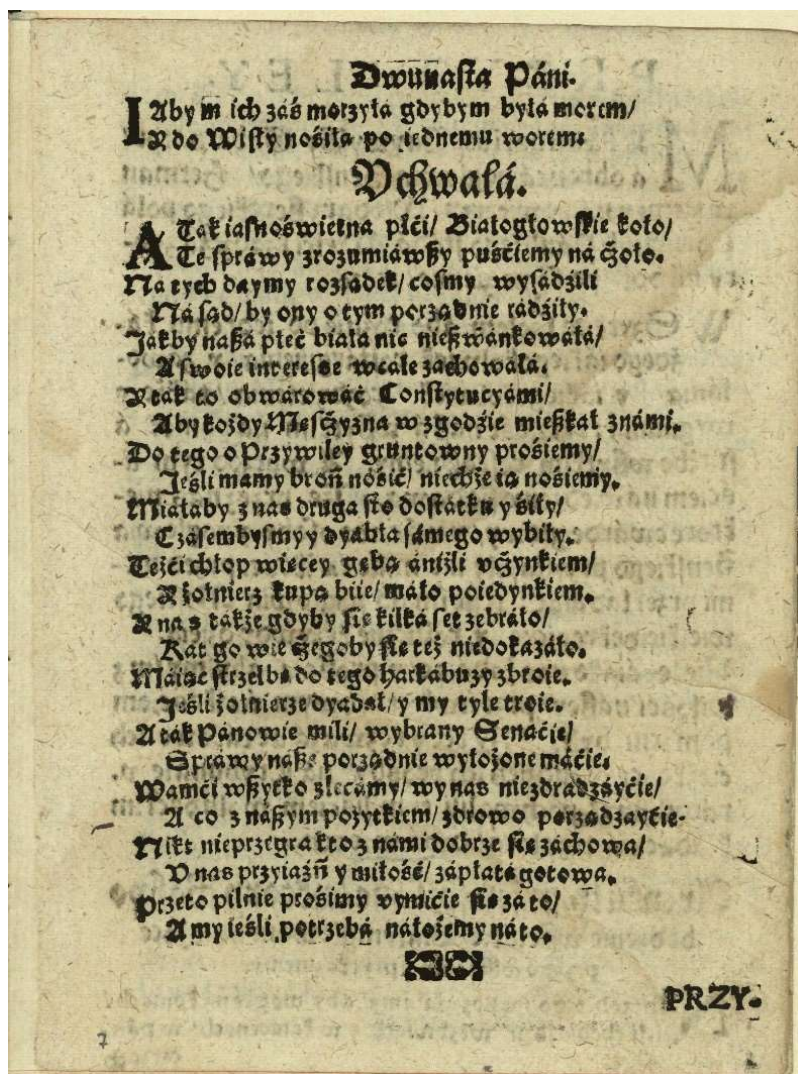 Dwunasta Páni.
IAbym ich záś morzyłá gdybym byłá morem/
A do Wisły nośiłá po iednemu worem.
Vchwałá.
ATak iásnoświetna płći/ Białogłowskie koło/
Te spráwy zrozumiawszy puśćiemy ná czoło.
Na tych daymy rozsądek/ cosmy wysádźili
Ná sąd/ by ony o tym porządnie rádźiły.
Jakby nászá płeć biała nic nieszwánkowáłá/
A swoie interesse wcále záchowáłá.
A ták to obwárowáć Constytucyámi/
Aby kożdy Mesczyzna w zgodźie mieszkał známi.
Do tego o Przywiley gruntowny prośiemy/
Jeśli mamy broń nośić/ niechże ią nośiemy.
Miáłáby z nas druga sto dostátku y śiły/
Czásembysmy y dyabłá sámego wybiły.
Teżći chłop więcey gębą ániżli vczynkiem/
A żołnierz kupą biie/ máło poiedynkiem.
A nas tákże gdyby się kilká set zebráło/
Kat go wie czegoby się też niedokazáło.
Máiąc strzelbę do tego harkábuzy zbroie.
Jeśli żołnierze dyabał/ y my tyle troie.
A ták Pánowie mili/ wybrany Senaćie/
Spráwy násze porządnie wyłożone máćie.
Wamći wszytko zlecamy/ wy nas niezdradzayćie/
A co z nászym pożytkiem/ zdrowo porządzayćie.
Nikt nieprzegra kto z námi dobrze się záchowa/
V nas przyiaźń y miłość/ zápłátá gotowa.
Przeto pilnie prośimy vymićie się zá to/
A my ieśli potrzebá náłożemy ná to.
PRZY.
7